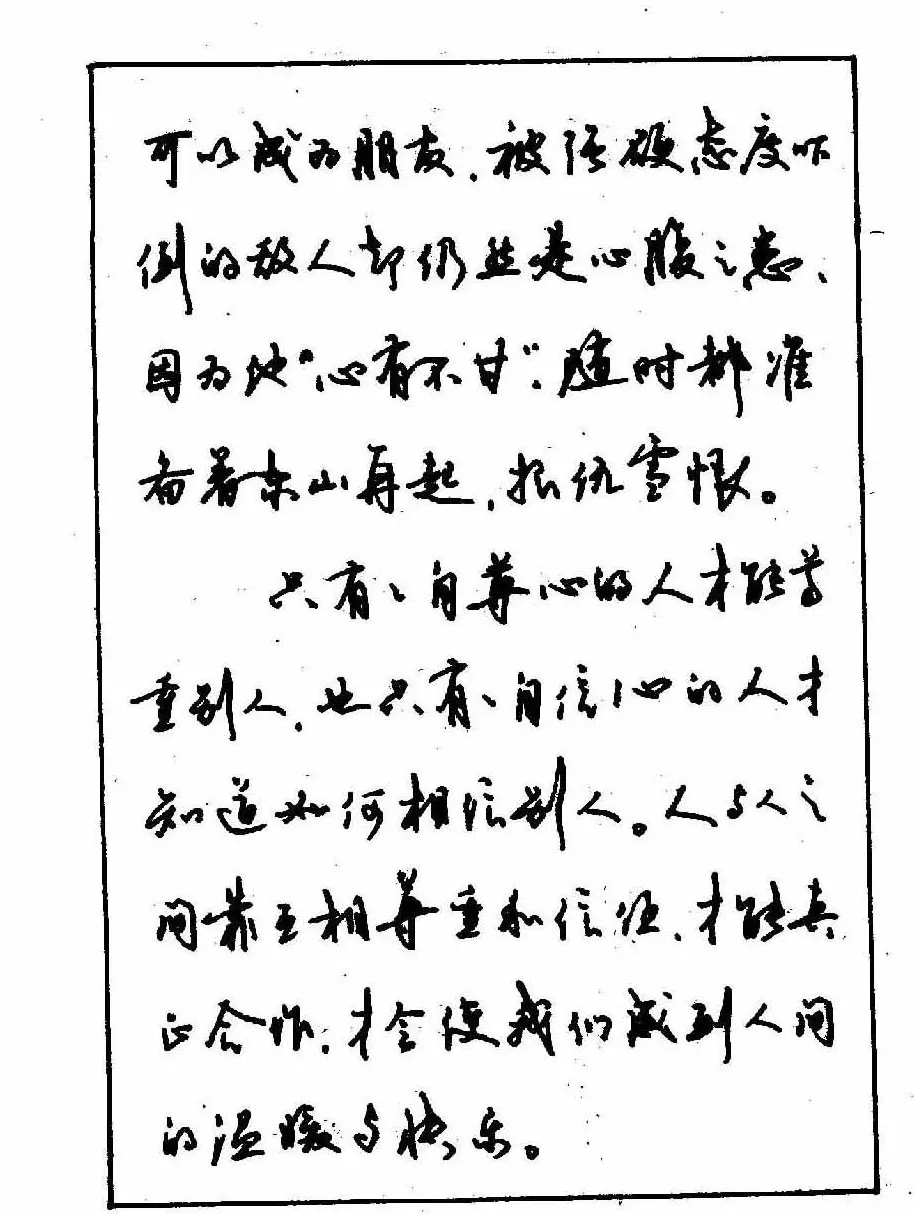 可以成为朋友，被强硬态度吓
倒的敌人却仍然是心腹之患、
因为他“心有不甘”，随时都准
备着东山再起，报仇雪恨。
只有有自尊心的人才能尊
重别人，也只有有自信心的人才
知道如何相信别人。人与人之
间靠互相尊重和信任，才能真
正合作，才会使我们感到人间
的温暖与快乐。